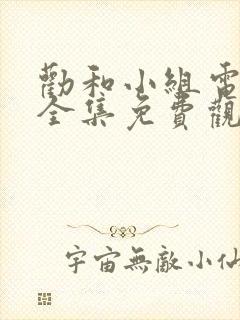 勸和小組電
全集免費觀
宇宙無敵小仙